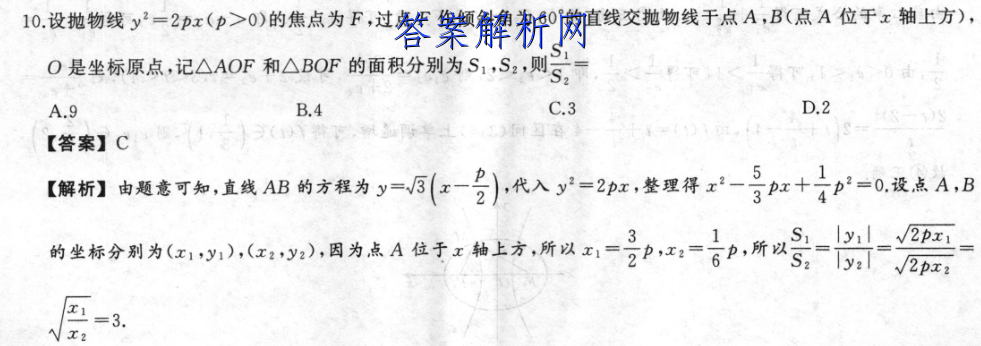 10.设抛物线 y²=2px(p>0)的焦点为 F,过点 F 作倾斜角为 60°的直线交抛物线于点 A,B(点 A 位于 x 轴上方),
答案解析网
O 是坐标原点,记△AOF 和△BOF 的面积分别为 S₁,S₂,则 S₁/S₂=
A.9 B.4 C.3 D.2
【答案】C
【解析】由题意可知,直线 AB 的方程为 y=√3(x-p/2),代入 y²=2px,整理得 x²-5/3px+1/4p²=0.设点 A,B
的坐标分别为(x₁,y₁),(x₂,y₂),因为点 A 位于 x 轴上方,所以 x₁=3/2p,x₂=1/6p,所以 S₁/S₂=|y₁|/|y₂|=√2px₁/√2px₂=
√x₁/x₂=3.